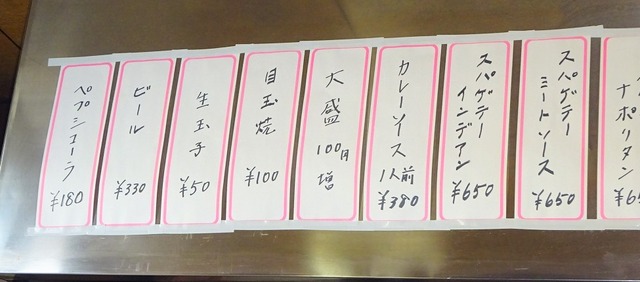 ナポリタン
¥65
スパゲテー
ミートソース
¥650
スパゲテー
インデアン
¥650
カレーソース
1人前
¥380
大盛100円増
目玉焼
¥100
生玉子
¥50
ビール
¥330
ペプシコーラ
¥180